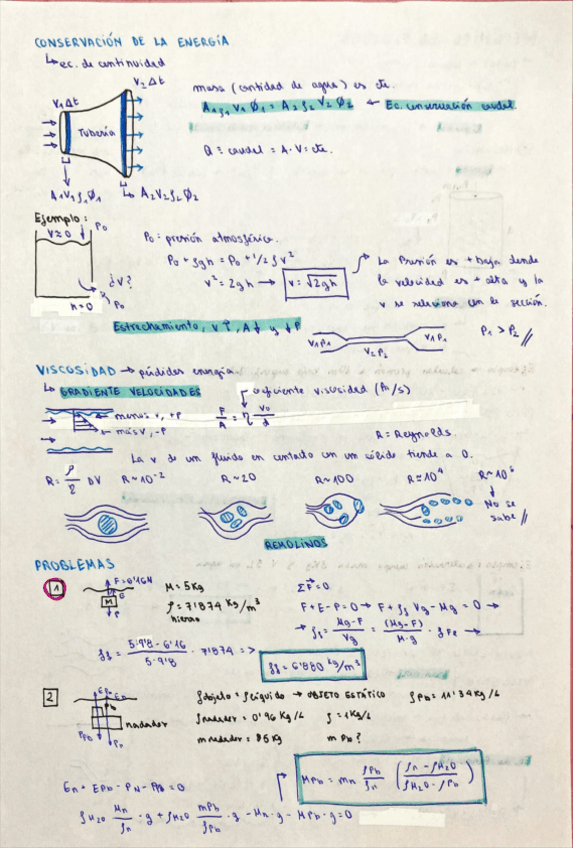 CONSERVACIÓN DE LA ENERGÍA
↳ ec. de continuidad
V₂Δt
V₁Δt
Tubería
A₁V₁ρ₁Ø₁
↳ A₂V₂ρ₂Ø₂
masa (cantidad de agua) es cte.
A₁ρ₁V₁Ø₁ = A₂ρ₂V₂Ø₂ ← Ec. conservación caudal
Q = caudal = A·V = cte.
Ejemplo:
V≈0 P₀
¿V?
P₀
h=0
P₀ = presión atmosférica.
P₀ + ρgh = P₀ + 1/2 ρv²
v² = 2gh → v = √2gh
La Presión es + baja donde
la velocidad es + alta y la
v se relaciona con la sección.
Estrechamiento, v↑, A↓ y ↓P
V₁P₁ V₁P₁
V₂P₂
P₁ > P₂ //
VISCOSIDAD → pérdidas energía
↳ GRADIENTE VELOCIDADES
coeficiente viscosidad (Pa/s)
menos v, +P
más v, -P
F/A = η v₀/d
R = Reynolds.
La v de un fluido en contacto con un sólido tiende a 0.
R = ρ/η DV R~10⁻² R~20 R~100 R≈10⁴ R~10⁶
No se
sabe //
REMOLINOS
PROBLEMAS
1
F=6'16N
E
M
P
M = 5Kg
ρ = 7'874 Kg/m³
hierro
ΣF = 0
F+E-P=0 → F + ρf Vg - Mg = 0 →
→ ρf = (Mg-F)/Vg = (Mg-F)/(M·g) · ρFe →
ρf = (5·9'8 - 6'16)/(5·9'8) · 7'874 => ρf = 6'880 kg/m³
2
nadador
ρobjeto = ρlíquido → OBJETO ESTÁTICO ρPb = 11'34 Kg/L
ρnadador = 0'96 Kg/L ρ = 1 Kg/L
mnadador = 85 Kg m Pb?
En + EPb - PN - PPb = 0
MPb = mn ρPb/ρn ((ρn - ρH₂O)/(ρH₂O - ρPb))
ρH₂O Mn/ρn · g + ρH₂O mPb/ρPb · g - Mn·g - MPb·g = 0